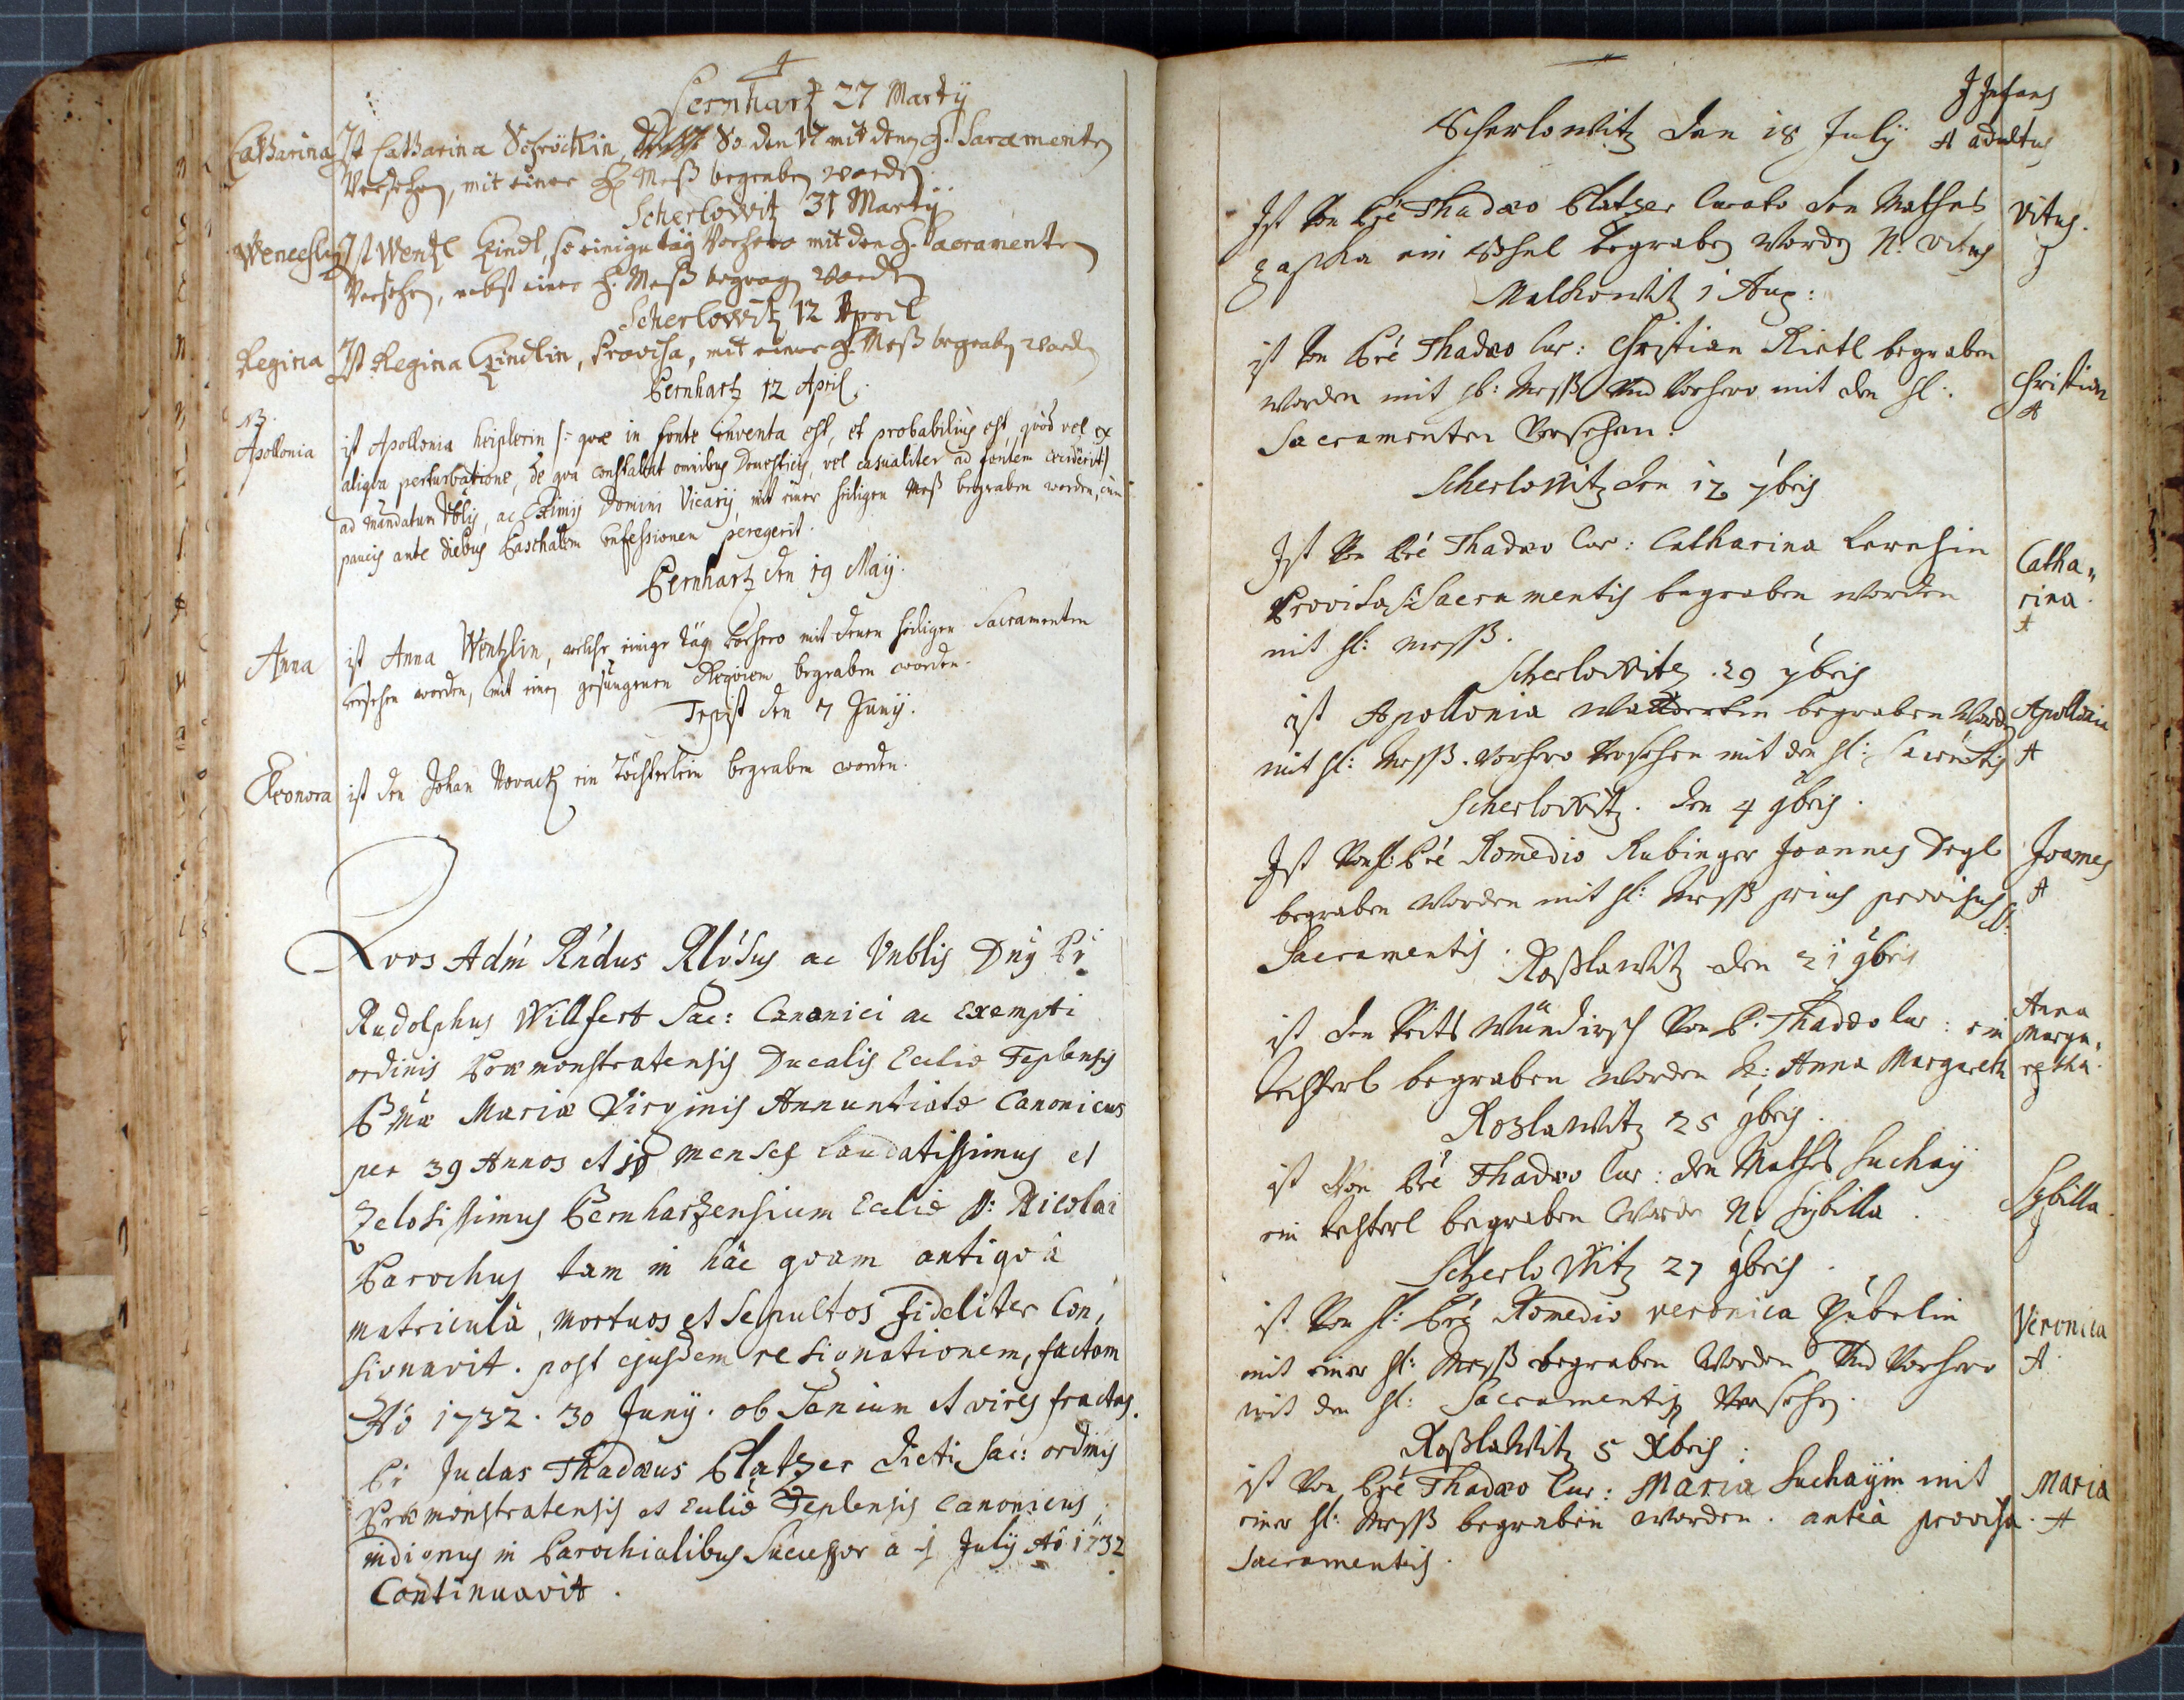 Bernhartz 27 Martij
Catharina Ist Catharina Schröckin, So den 17 mit denen H. Sacramenten
Versehen, mit einer H. Meß begraben worden.
Scherlowitz 31 Martij
Wenceslaus Ist Wentzl Kindl, so einige täg Vorhero mit den H. Sacramenten
Versehen, nebst einer H. Meß begraben worden
Scherlowitz 12 April
Regina Ist Regina Kindlin, Provisa, mit einer H. Meß begraben worden
Bernhartz 12 April.
NB.
Apollonia ist Apollonia heiplerin /: quæ in fonte inventa est, et probabilius est, quòd vel ex
aliqva perturbatione, de qva constabat omnibus Domesticis, vel casualiter ad fontem ceciderit/
ad mandatum Vblis, ac Eximij Domini Vicarij, mit einer heiligen Meß begraben worden, cum
paucis ante diebus Paschalem Confessionem peregerit.
Bernhartz den 19 Maij.
Anna ist Anna Wentzlin, welche einige täg Vorhero mit denen heiligen Sacramenten
versehen worden, mit einem gesungenen Reqviem begraben worden.
Trpist den 7 Junij.
Eleonora ist den Johan Novack ein Töchterlein begraben worden.
Qvos Adm Rndus Rlosus ac Vnblis Dnus Pr
Rudolphus Willfert Sac: Canonici ac Exempti
ordinis Præmonstratensis Ducalis Ecclie Teplensis
Bmæ Mariæ Virginis Annuntiatæ Canonicus
per 39 Annos et 10 menses laudatissimus et
Zelosissimus Bernhartzensium Ecclie S: Nicolai
Parochus tam in hac qvam antiqvâ
matriculâ, mortuos et Sepultos fideliter Con,
signavit. post ejusdem resignationem, factam
Aô 1732. 30 Junij. ob Senium et vires fractas.
Pr Judas Thadæus Platzer dicti Sac: ordinis
Præmonstratensis et Eccliæ Teplensis Canonicus,
indignus in Parochialibus Successor a 1 July Aô 1732
Continuavit.
J Infans
Scherlowitz den 18 July A adultus
Ist Von Pre Thadæo Platzer Curato den Mathes
paschka ein Sohnl begraben worden N. Vitus Vitus.
J
Malkowitz 1 Aug:
ist Von Pre Thadæo Cur: Christian Riedl begraben
worden mit hl: Mess und Vorhero mit den hl: Christian
A
Sacramenten Versehen.
Scherlowitz den 12 7bris
Ist Von Pre Thadæo Cur: Catharina Lernhin Catha,,
Provisa S: Sacramentis begraben worden rina.
A
mit hl: mess.
Scherlowitz 29 7bris
ist Apollonia begraben worden Apollonia
mit hl: Mess. Vorhero Versehen mit den hl: A
Scherlowitz. den 4 9bris.
Ist Von hl: Pre Romedio Rubinger Joannes Degl Joannes
begraben worden mit hl: Mess prius provisus SS: A
Sacramentis.
Roßlawitz den 21 9bris
ist den Veits Wündirsch Von P. Thadæo Cur: ein Anna
Marga,
techterl begraben worden N: Anna Margareth retha.
J
Roslawitz 25 9bris.
ist Von Pre Thadæo Cur: den Mathes Suchaÿ
ein techterl begraben worden N: Sybilla. Sybilla.
J
Scherlowitz 27 9bris.
ist Von hl: Pre Romedio Veronica Pübelin Veronica
mit einer hl: Mess begraben worden Und Vorhero A
mit den hl: Sacramentis Versehen.
Roßlawitz 5 Xbris.
ist Von Pre Thadæo Cur: Maria Suchaÿin mit Maria
einer hl: Mess begraben worden. anteà provisa. A
Sacramentis.